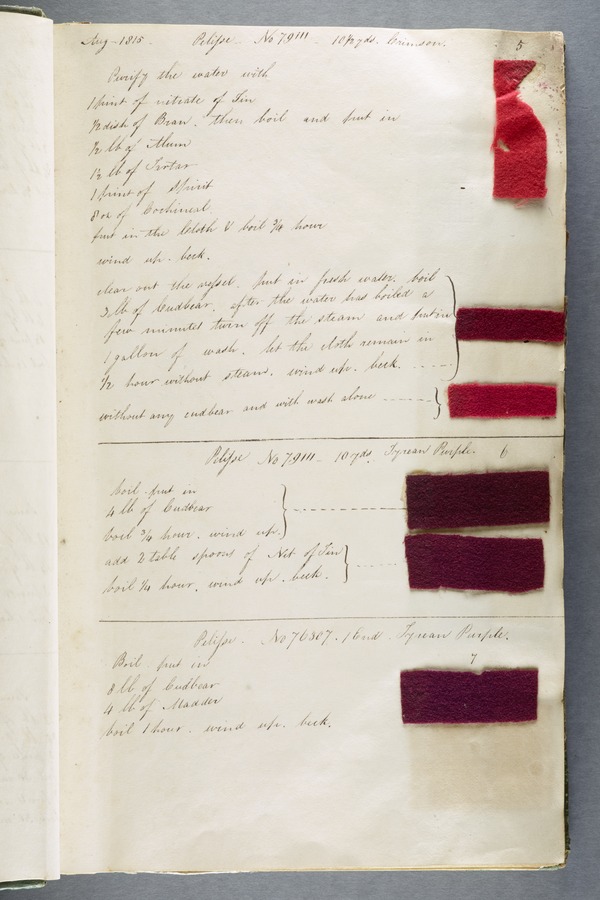 Aug - 1815. Pelisse No 79111 - 10½ yds. Crimson. 5
Purify the water with
1 pint of nitrate of Tin
½ dish of Bran. then boil and put in
½ lb of Alum
1½ lb of Tartar
1 pint of Spirit
8 oz of Cochineal
put in the Cloth & boil ¾ hour
wind up. beck.
clear out the vessel. put in fresh water. boil
2 lb of Cudbear. after the water has boiled a
few minutes turn off the steam and put in
1 gallon of wash. let the cloth remain in
½ hour without steam. wind up. beck.
without any cudbear and with wash alone
Pelisse No 79111 - 10 yds. Tyrean Purple. 6
boil put in
4 lb of Cudbear
boil ¾ hour. wind up.
add 2 table spoons of Nit of Tin
boil ¼ hour. wind up. beck.
Pelisse. No 76387. 1 End Tyrean Purple.
7
Boil put in
8 lb of Cudbear
4 lb of Madder
boil 1 hour. wind up. beck.